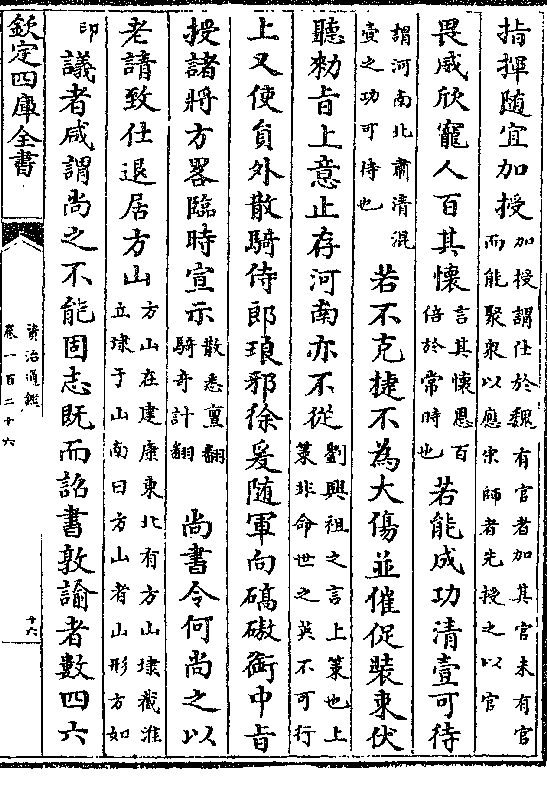 指揮随宜加授加授謂仕於魏有官者加其官未有官
而能聚衆以應宋師者先授之以官
畏威欣寵人百其懷言其懷恩百
倍於常時也若能成功清壹可待
謂河南北肅清混
壹之功可待也若不克捷不為大傷並催促裝束伏
聽勑旨上意止存河南亦不從劉興祖之言上策也上
策非命世之英不可行
上又使員外散騎侍郎琅邪徐爰随軍向碻磝銜中旨
授諸將方畧臨時宣示散悉亶翻
騎奇計翻尚書令何尚之以
老請致仕退居方山方山在建康東北有方山埭截淮
立埭于山南曰方山者山形方如
印議者咸謂尚之不能固志既而詔書敦諭者數四六
欽定四庫全書
資治通鑑
卷一百二十六
十六